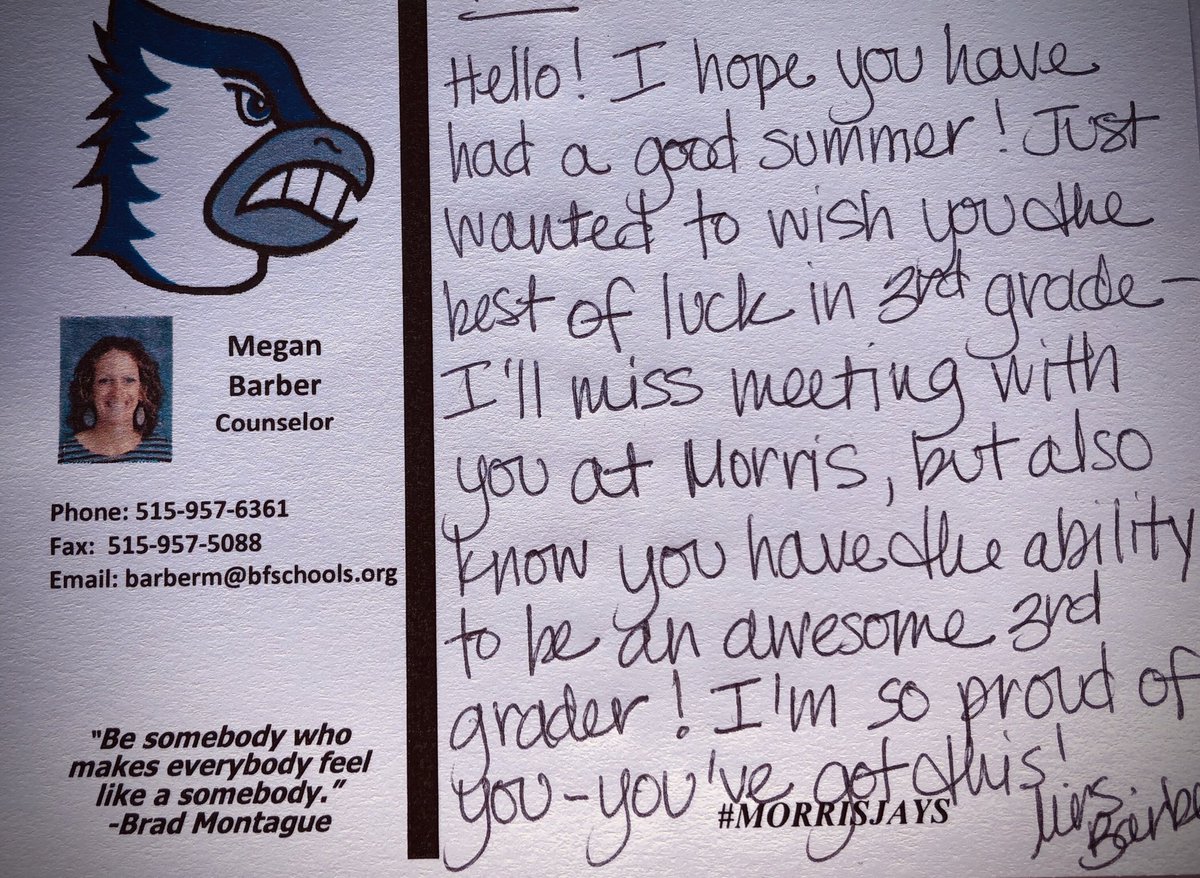 Megan
Barber
Counselor
Phone: 515-957-6361
Fax:  515-957-5088
Email: barberm@bfschools.org
"Be somebody who
makes everybody feel
like a somebody."
-Brad Montague
Hello! I hope you have
had a good summer! Just
wanted to wish you the
best of luck in 3rd grade-
I'll miss meeting with
you at Morris, but also
know you have the ability
to be an awesome 3rd
grader! I'm so proud of
you-you've got this!
#MORRISJAYS
Mrs.
Barbe